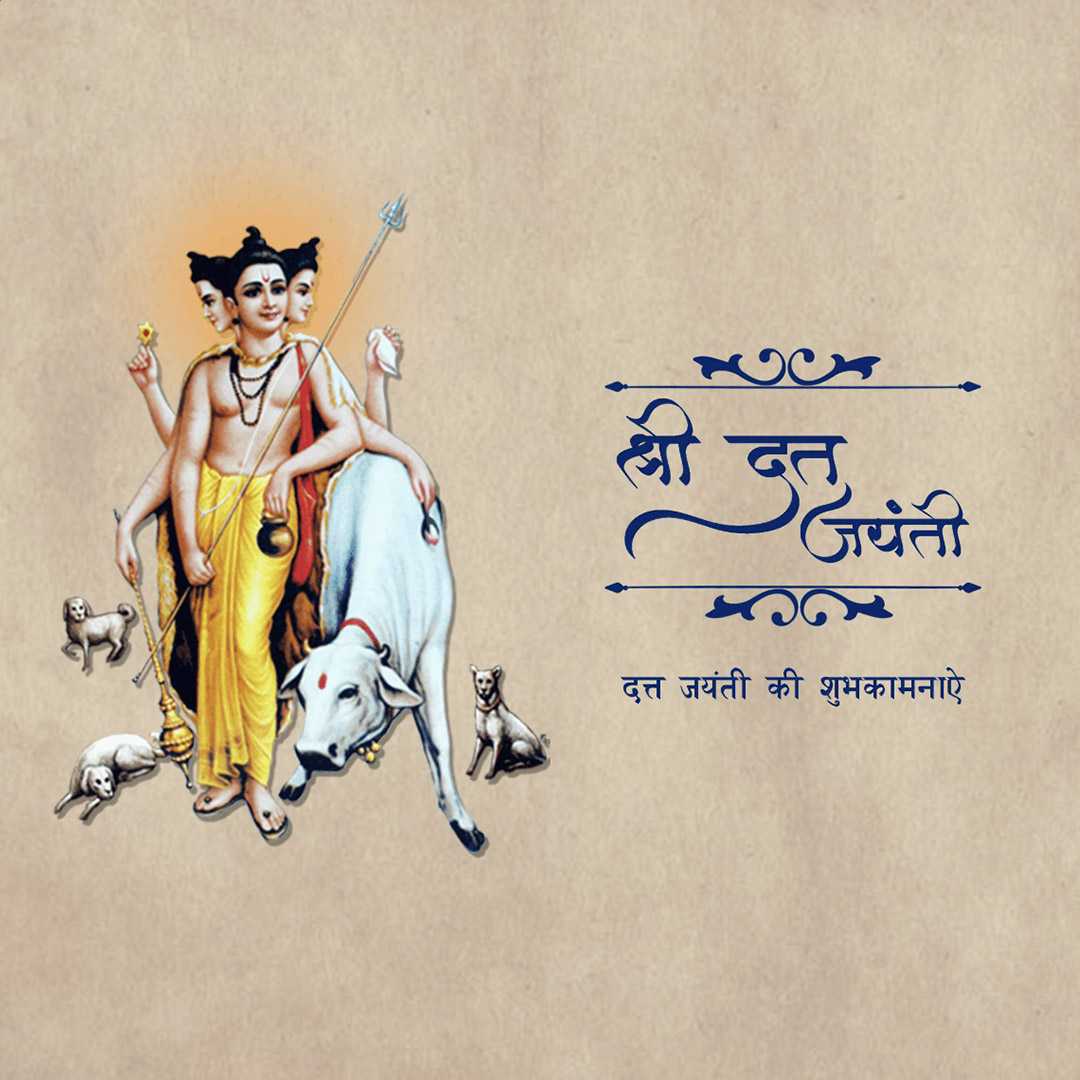 श्री दत्त
जयंती
दत्त जयंती की शुभकामनाऐ